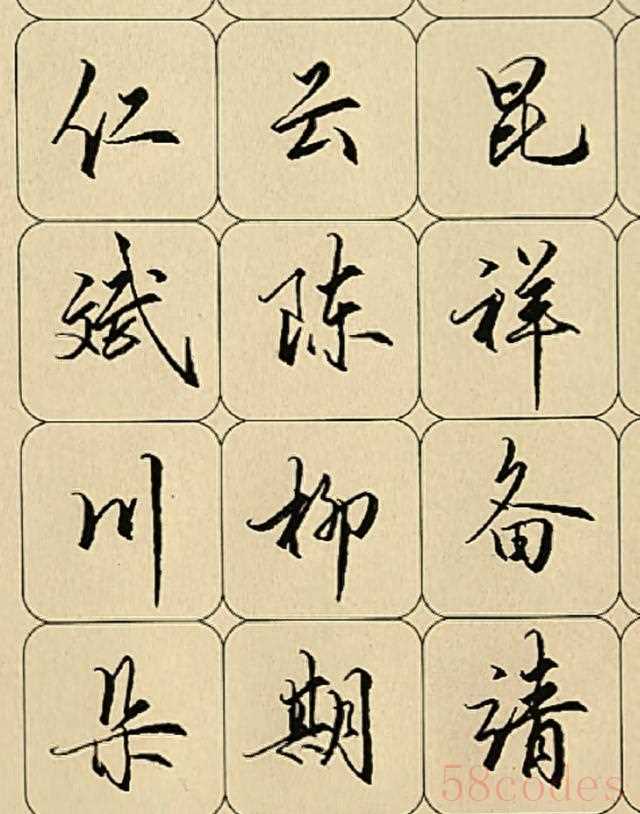 仁云昆
斌陈祥
川柳备
朵期请
58codes